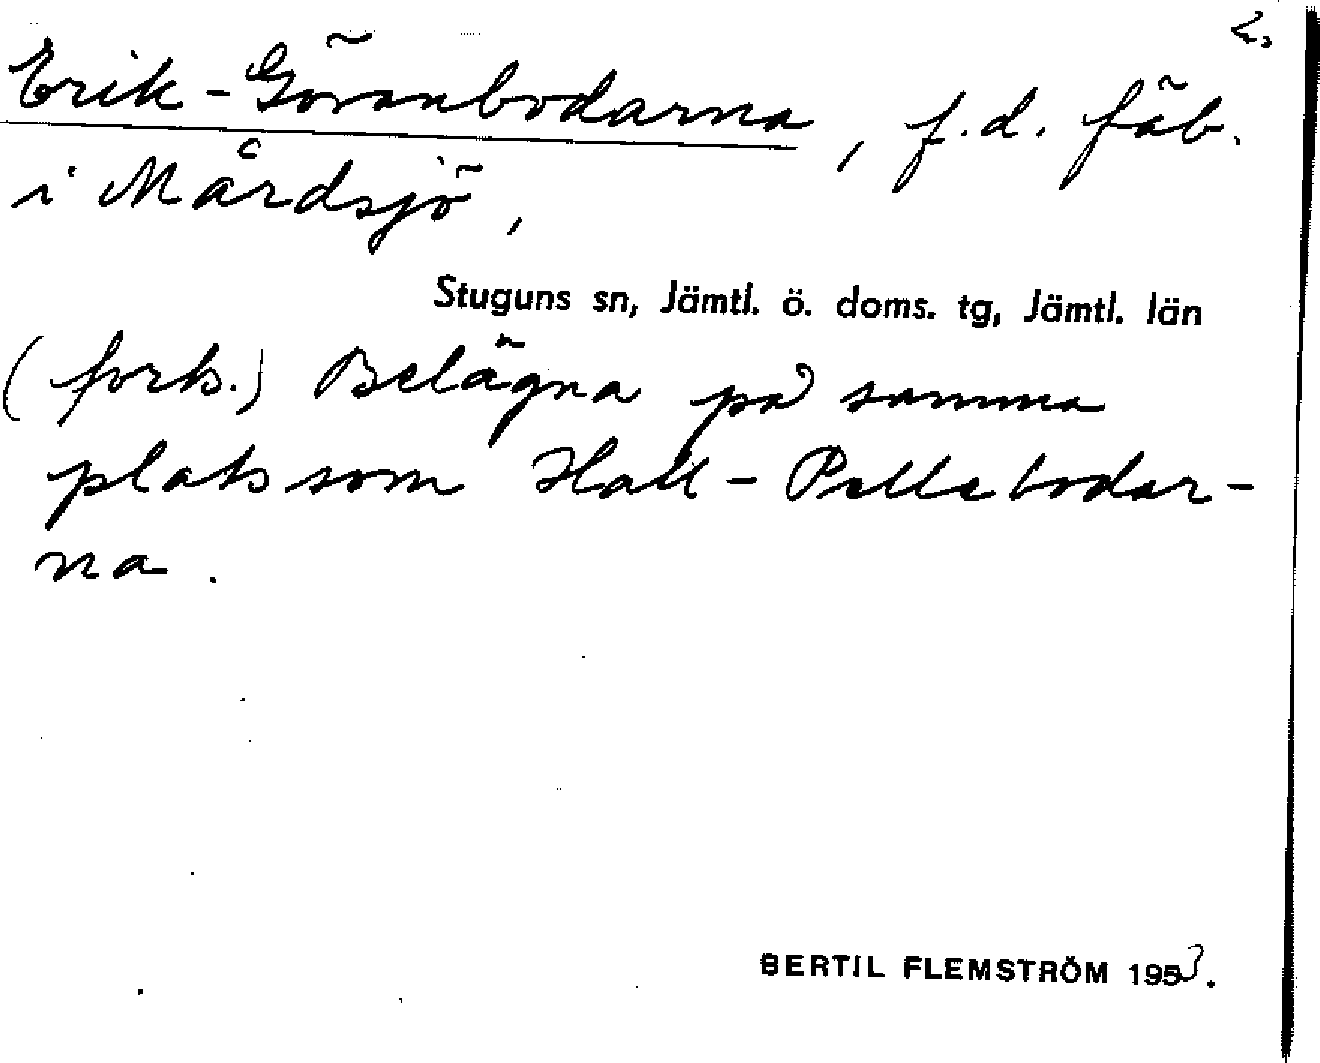 2.
Erik-Göranbodarna, f.d. fäb.
i Mårdsjö,
Stuguns sn, Jämtl. ö. doms. tg, Jämtl. län
(forts.) Belägna på samma
plats som Hall-Pellebodar-
na.
BERTIL FLEMSTRÖM 1953.